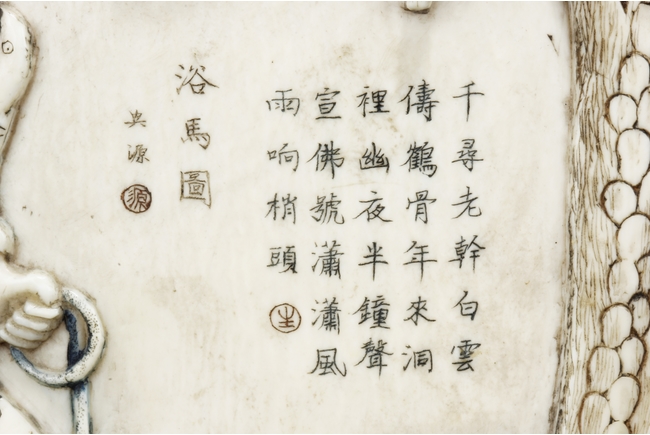 千尋老幹白雲
儔鶴骨年來洞
裡幽夜半鐘聲
宣佛號瀟瀟風
雨响梢頭
生
浴馬圖
吳源
源